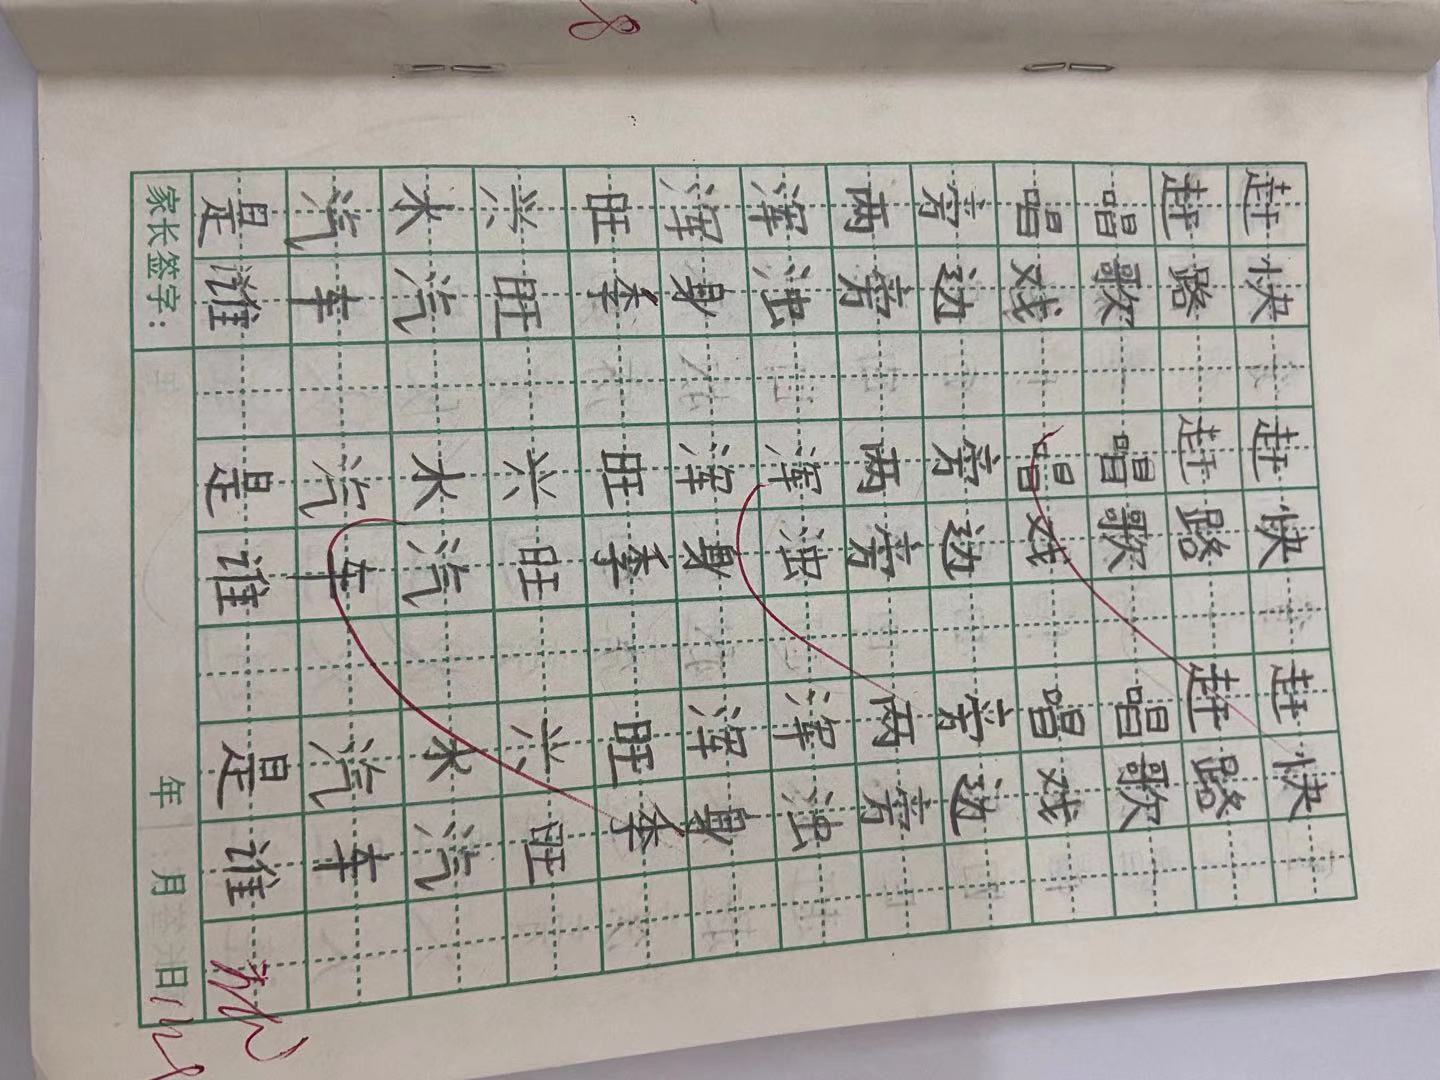 赶快 赶快 赶快
赶路 赶路 赶路
唱歌 唱歌 唱歌
唱戏 唱戏 唱戏
旁边 旁边 旁边
两旁 两旁 两旁
浑浊 浑浊 浑浊
浑身 浑身 浑身
旺季 旺季 旺季
兴旺 兴旺 兴旺
水汽 水汽 水汽
汽车 汽车 汽车
是谁 是谁 是谁
家长签字： 年 月 日